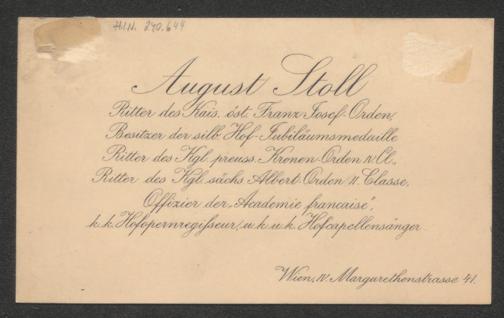 H.I.N. 240.644
August Stoll
Ritter des Kais. öst. Franz Josef-Orden,
Besitzer der silb. Hof-Jubiläumsmedaille
Ritter des Kgl. preuss. Kronen-Orden IV. Cl.,
Ritter des Kgl. sächs. Albert-Orden II. Classe,
Offizier der „Academie francaise",
k. k. Hofopernregisseur, u. k. u. k. Hofcapellensänger.
Wien, IV. Margarethenstrasse 41.